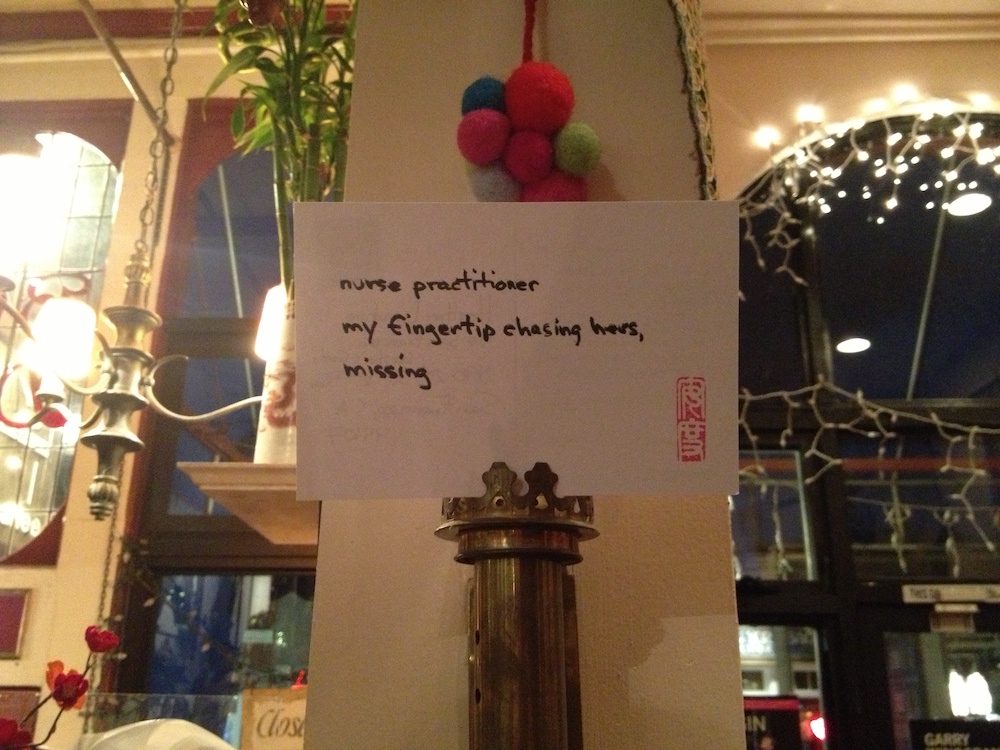 nurse practitioner
my fingertip chasing hers,
missing
Close
THIS
IN
GARRY